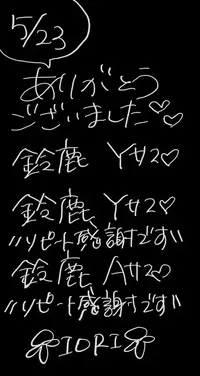 5/23
ありがとう
ございました♡♡
鈴鹿 Yサス♡
鈴鹿 Yサス
"リピート感謝です"
鈴鹿 Aサス♡
"リピート感謝です"
IORI